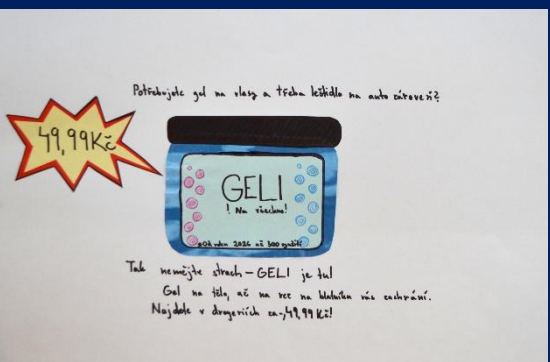 Potřebujete gel na vlasy a třeba leštidlo na auto zároveň?
49,99Kč
GELI
! Na všechno!
Od roku 2026 až 500 využití
Tak nemějte strach – GELI je tu!
Gel na tělo, ač na rez na blatníku vás zachrání.
Najdete v drogeriích za 49,99 Kč!